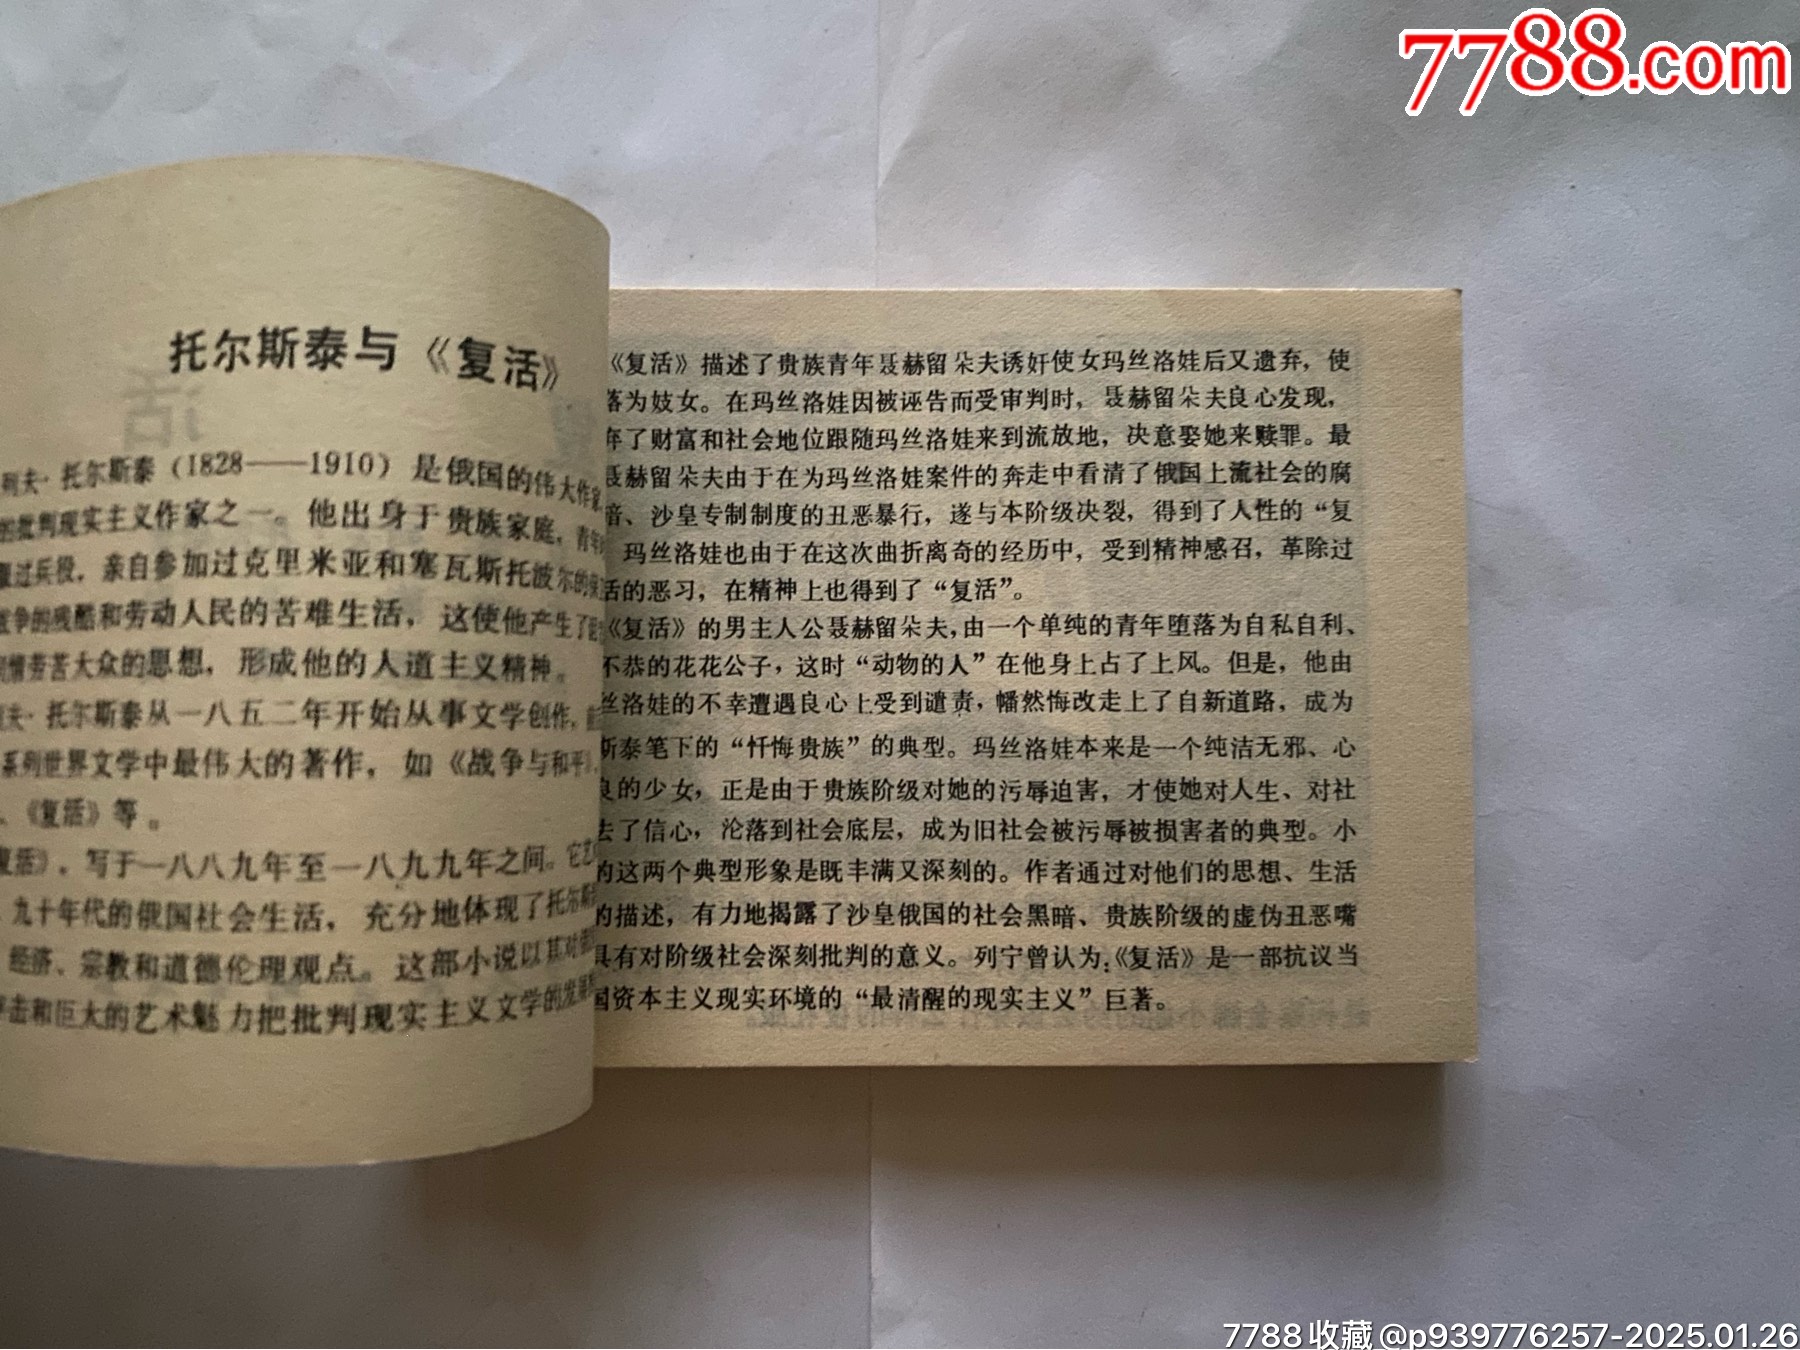 7788.com
托尔斯泰与《复活》
列夫·托尔斯泰(1828——1910)是俄国的伟大作家
的批判现实主义作家之一。他出身于贵族家庭，青年
服过兵役，亲自参加过克里米亚和塞瓦斯托波尔的
战争的残酷和劳动人民的苦难生活，这使他产生了
同情劳苦大众的思想，形成他的人道主义精神。
列夫·托尔斯泰从一八五二年开始从事文学创作，
系列世界文学中最伟大的著作，如《战争与和平》
、《复活》等。
复活》，写于一八八九年至一八九九年之间。它
九十年代的俄国社会生活，充分地体现了托尔斯
经济、宗教和道德伦理观点。这部小说以其对
击和巨大的艺术魅力把批判现实主义文学的发展
《复活》描述了贵族青年聂赫留朵夫诱奸使女玛丝洛娃后又遗弃，使
落为妓女。在玛丝洛娃因被诬告而受审判时，聂赫留朵夫良心发现，
弃了财富和社会地位跟随玛丝洛娃来到流放地，决意娶她来赎罪。最
聂赫留朵夫由于在为玛丝洛娃案件的奔走中看清了俄国上流社会的腐
暗、沙皇专制制度的丑恶暴行，遂与本阶级决裂，得到了人性的“复
玛丝洛娃也由于在这次曲折离奇的经历中，受到精神感召，革除过
活的恶习，在精神上也得到了“复活”。
《复活》的男主人公聂赫留朵夫，由一个单纯的青年堕落为自私自利、
不恭的花花公子，这时“动物的人”在他身上占了上风。但是，他由
丝洛娃的不幸遭遇良心上受到谴责，幡然悔改走上了自新道路，成为
斯泰笔下的“忏悔贵族”的典型。玛丝洛娃本来是一个纯洁无邪、心
良的少女，正是由于贵族阶级对她的污辱迫害，才使她对人生、对社
去了信心，沦落到社会底层，成为旧社会被污辱被损害者的典型。小
的这两个典型形象是既丰满又深刻的。作者通过对他们的思想、生活
的描述，有力地揭露了沙皇俄国的社会黑暗、贵族阶级的虚伪丑恶嘴
具有对阶级社会深刻批判的意义。列宁曾认为：《复活》是一部抗议当
国资本主义现实环境的“最清醒的现实主义”巨著。
7788收藏@p939776257-2025.01.26